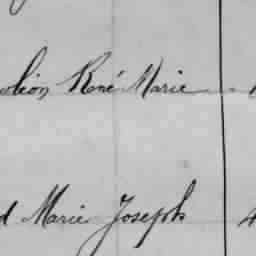 René Marie
Marie Joseph